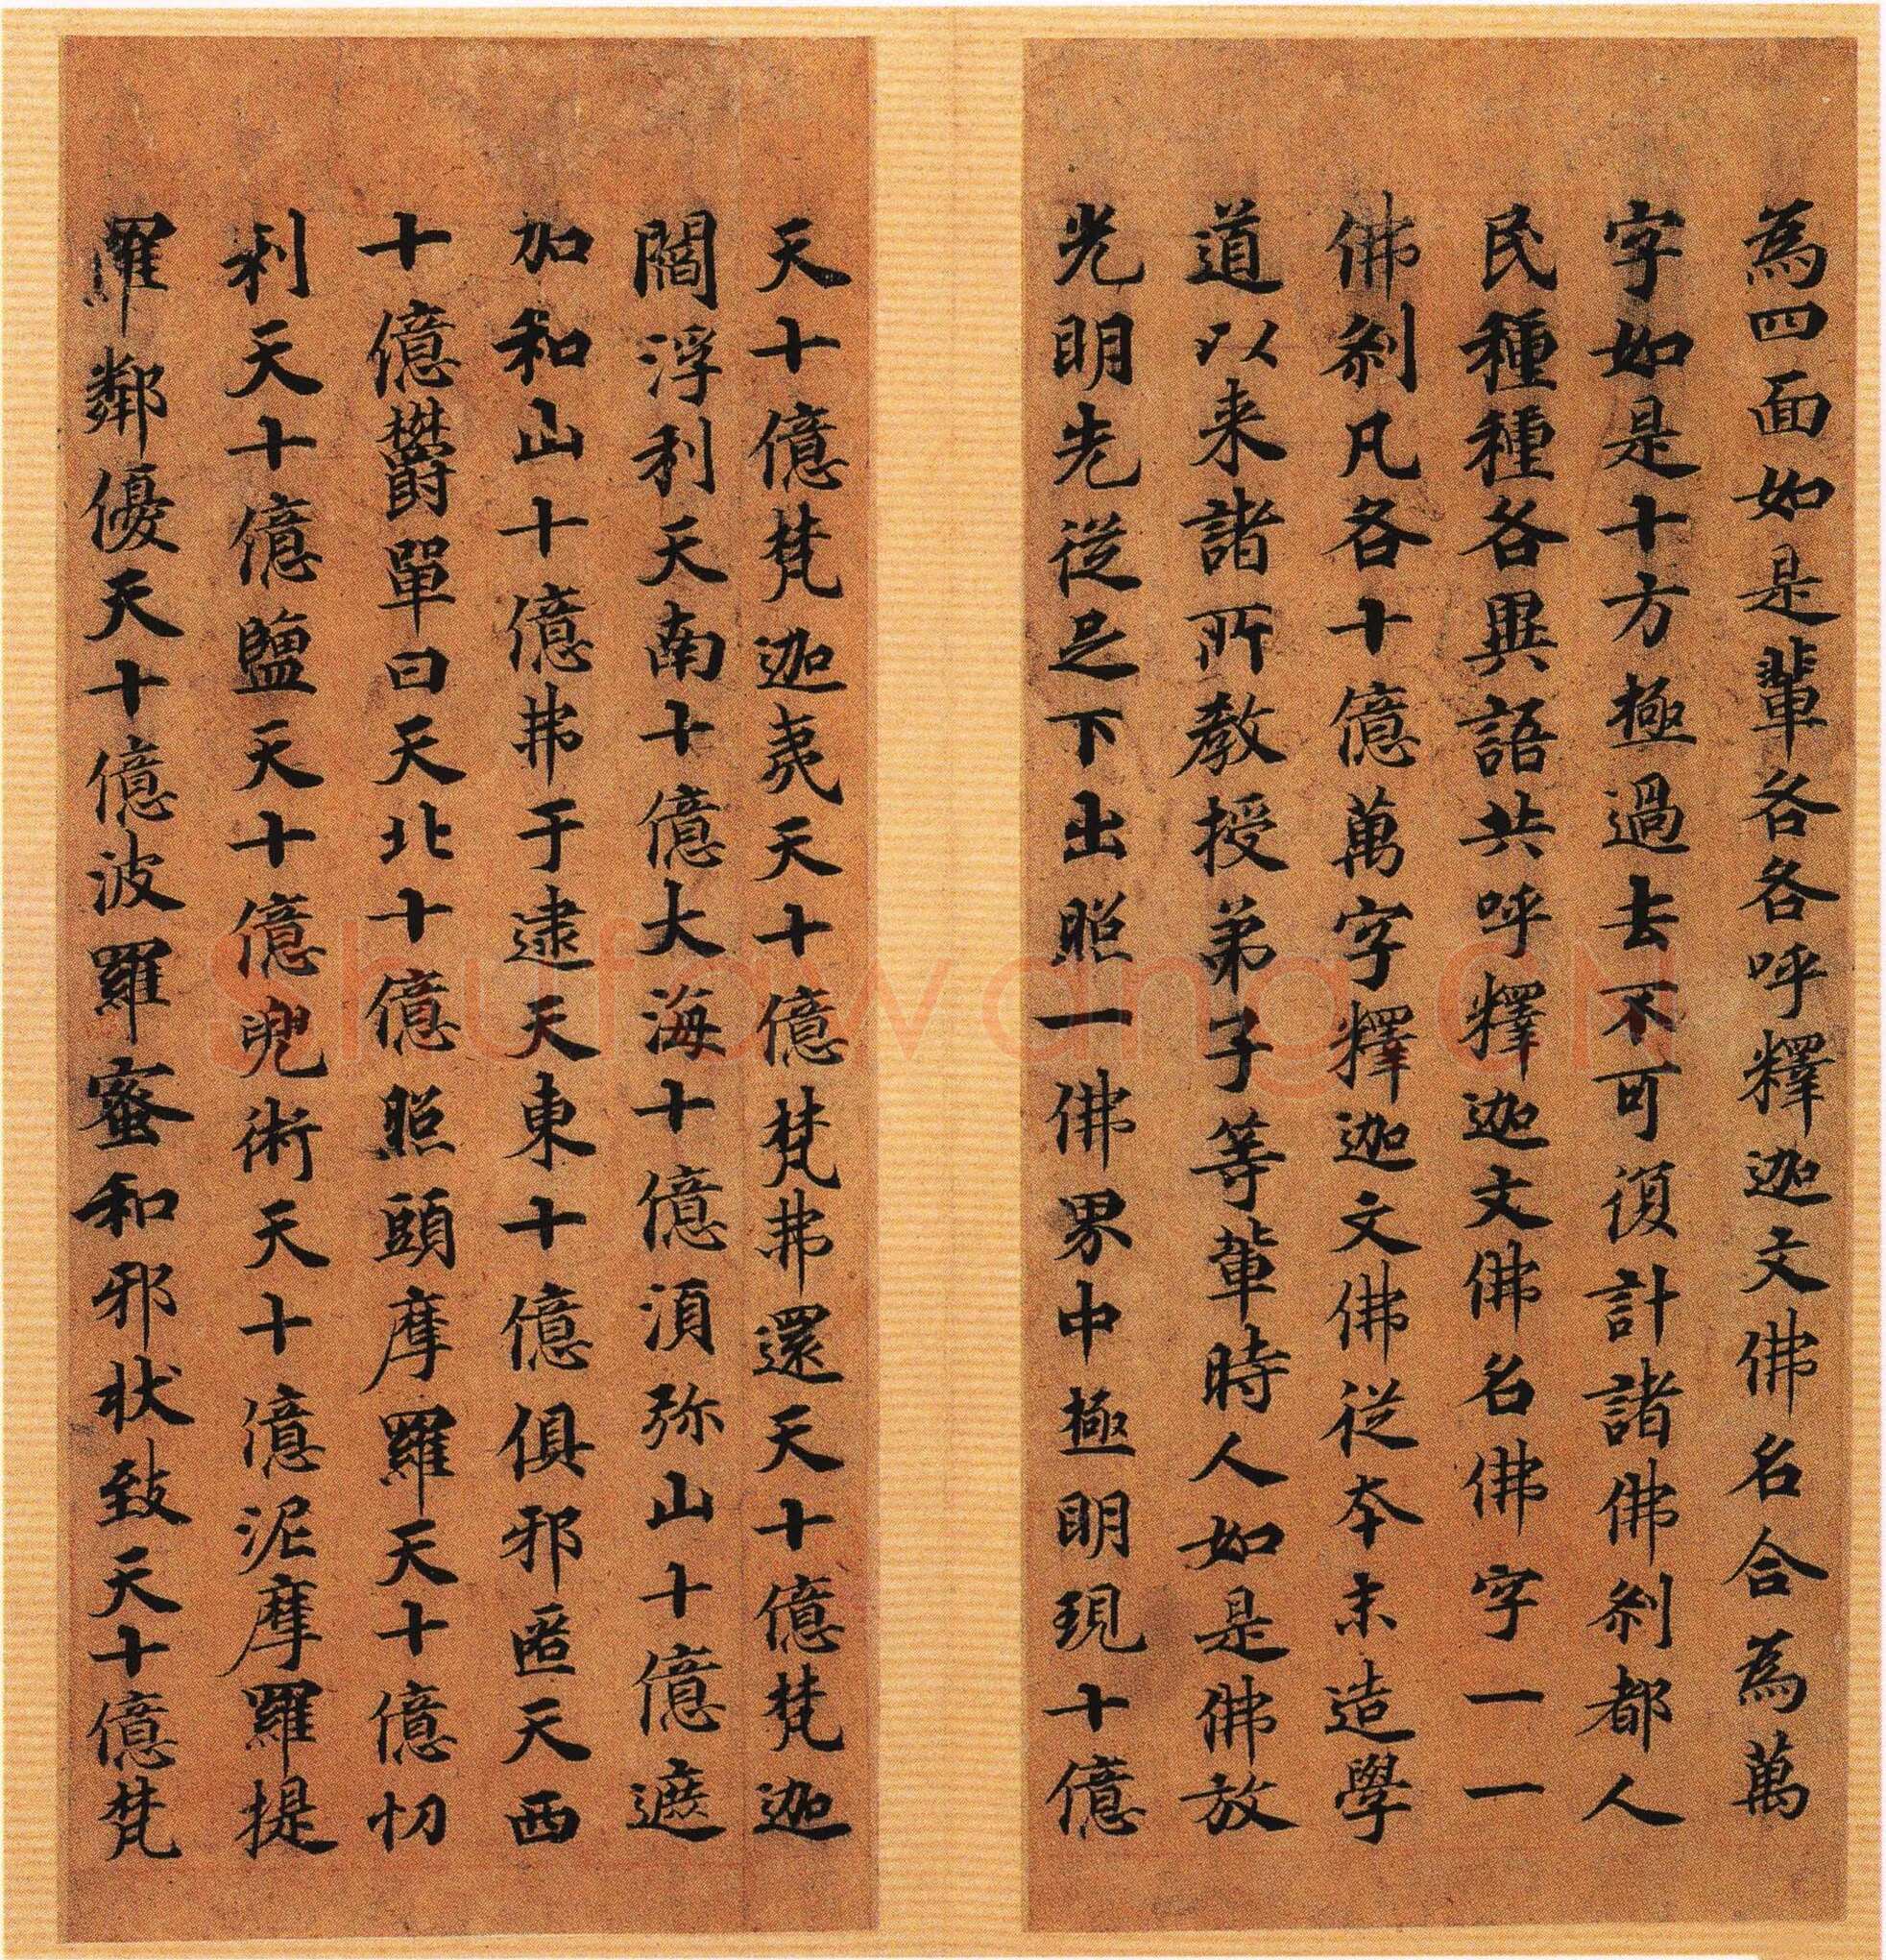 為四面如是輩各各呼釋迦文佛名合為萬
字如是十方極過去不可復計諸佛剎都人
民種種各異語共呼釋迦文佛名佛字一一
佛剎凡各十億萬字釋迦文佛從本末造學
道以来諸所教授弟子等輩時人如是佛放
光明先從足下出照一佛界中極明現十億
天十億梵迦夷天十億梵弗還天十億梵迦
閻浮利天南十億大海十億須弥山十億遮
加和山十億弗于逮天東十億俱邪匿天西
十億鬱單曰天北十億照頭摩羅天十億忉
利天十億鹽天十億兜術天十億泥摩羅提
羅鄰優天十億波羅蜜和邪狀致天十億梵
Shufawang.CN